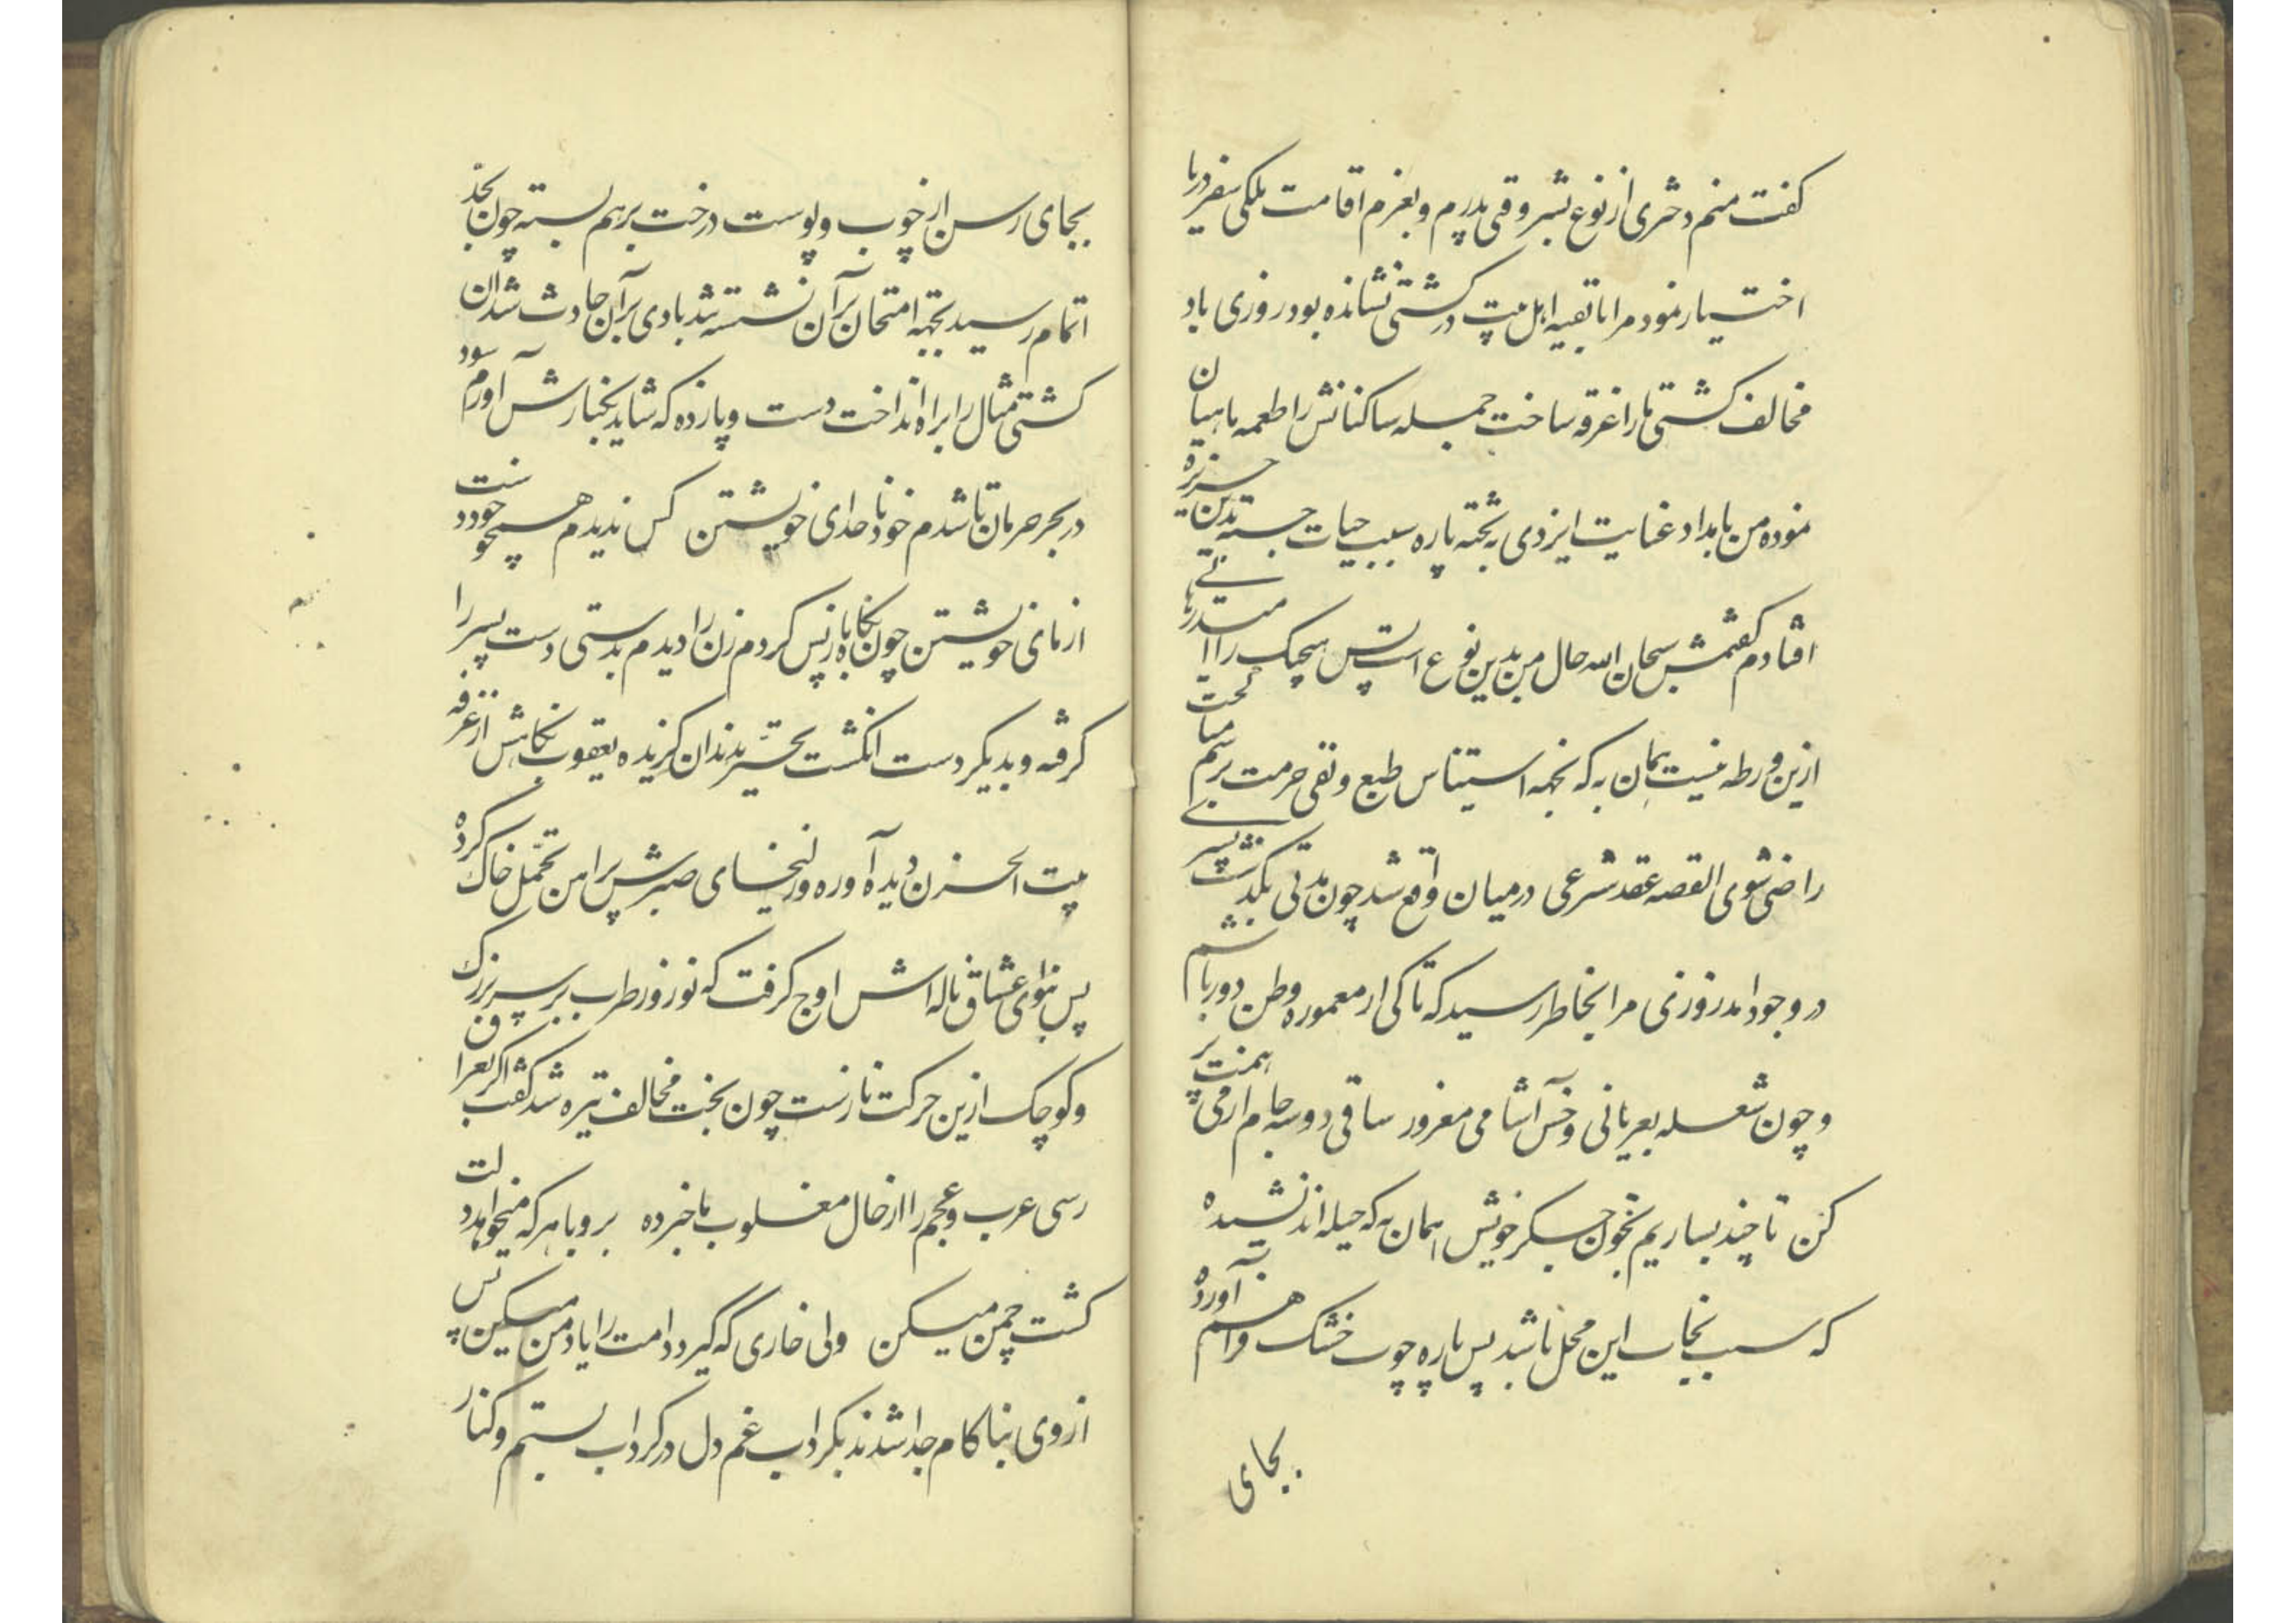 کفت منم دختری از نوع بشر وقتی پدرم و بعزم اقامت ملکی سفر دریا
اختیار نمود مرا با بقیه اهل بیت در کشتی نشانده بود روزی باد
مخالف کشتی ما را غرقه ساخت جمله ساکنانش را طعمه ماهیان
نموده من بامداد عنایت ایزدی بر تخته پاره سبب حیات جسته بدین جزیره
افتادم کفتمش سبحان الله حال من بدین نوع است پس هیچیک را امید رهائی
ازین ورطه نیست همان به که بجهه استیناس طبع و نفی حرمت برسم مناکحت
راضی شوی القصه عقد شرعی درمیان واقع شد چون مدتی بگذشت پسری
در وجود امد روزی مرا بخاطر رسید که تا کی از معموره وطن دور باشم
و چون شعله بعریانی و خس آشامی مغرور ساقی دوسه جام از می همت پر
کن تا چند بسازیم بخون جگر خویش همان به که حیله اندیشیده
که سبب نجات این محل باشد پس پاره چوب خشک فراهم آورده
بجای
بجای رسن از چوب و پوست درخت برهم بسته چون بحد
اتمام رسید بجهه امتحان برآن نشسته شد بادی برآن حادث شد ان
کشتی مثال را براه انداخت دست و پا زده که شاید بکنارش آورم سود
در بحر حرمان تا شدم خود ناخدای خویشتن کس ندیدم همچو خود دست
از مای خویشتن چون نکاه بازپس کردم زن را دیدم بدستی دست پسر را
کرفته و بدیکر دست انکشت تحیر بدندان کزیده یعقوب نکاهش از غرفه
بیت الحزن دیده آورده و زلیخای صبرش پیراهن تحمل چاک کرده
پس بنوای عشاق ناله اش اوج کرفت که نوروز طرب بر پسر بزرک
و کوچک ازین حرکت نارست چون بخت مخالف تیره شد کفت اکر بعراق
رسی عرب و عجم را از حال مغلوب ما خبر ده برو با هرکه میخواهد دلت
کشت چمن میکن ولی خاری که گیرد دامنت را یاد من میکن پس
از وی بناکام جدا شدند بکرداب غم دل در کرداب بستم و کنار